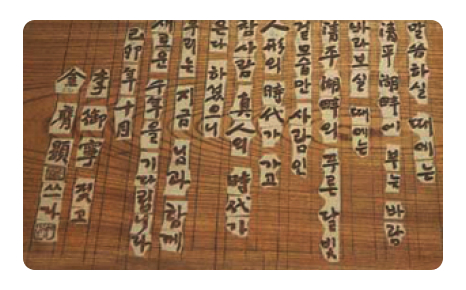 말씀하실 때에는
淸平 湖畔에 부는 바람
바라보실 때에는
淸平 湖畔의 푸른 달빛
겉모습만 사람인
人形의 時代가 가고
참사람 眞人의 時代가
온다 하셨으니
우리는 지금 님과 함께
새로운 千年을 기다립니다
己卯年 十月
李御寧 짓고
金 膺顯 쓰다